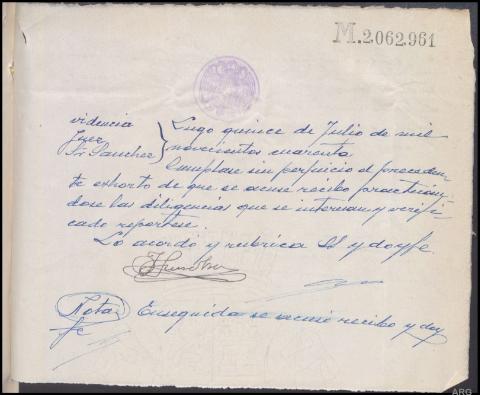 M.2.062.961
videncia
Juez
Sr Sanchez
Lugo quince de Julio de mil
novecientos cuarenta
Cumplase sin perjuicio el preceden-
te exhorto de que se acuse recibo practican-
dose las diligencias que se interesan y verifi-
cado reportese.
Lo acordó y rubrica SS y doy fe
Nota Enseguida se acusó recibo y doy
fe
ARG